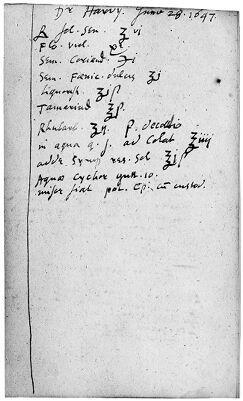 Dr Harvy. June 28. 1647.
℞ fol. Sen. ʒ vi
Flo. viol. pj
Sem. Coriand. ʒi
Sem. Fœnic. dulcis ʒj
Liquorit. ʒiſ
Tamarind ʒſ.
Rhubarb. ʒij. F. decoctio
in aqua q. s. ad Colat ʒiiij
adde Syrup ros. Sol ʒiſ
Aquæ Cychor gutt. 10.
misce fiat pot. Cp. cū custod.